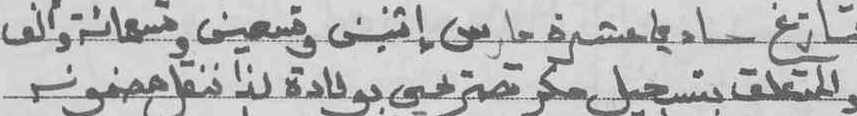 بتاريخ حادي عشرة مارس إثنين وتسعين وتسعمائة وألف
والمتعلق بتسجيل حكم تصريحي بولادة لذا ننقل مضمونه